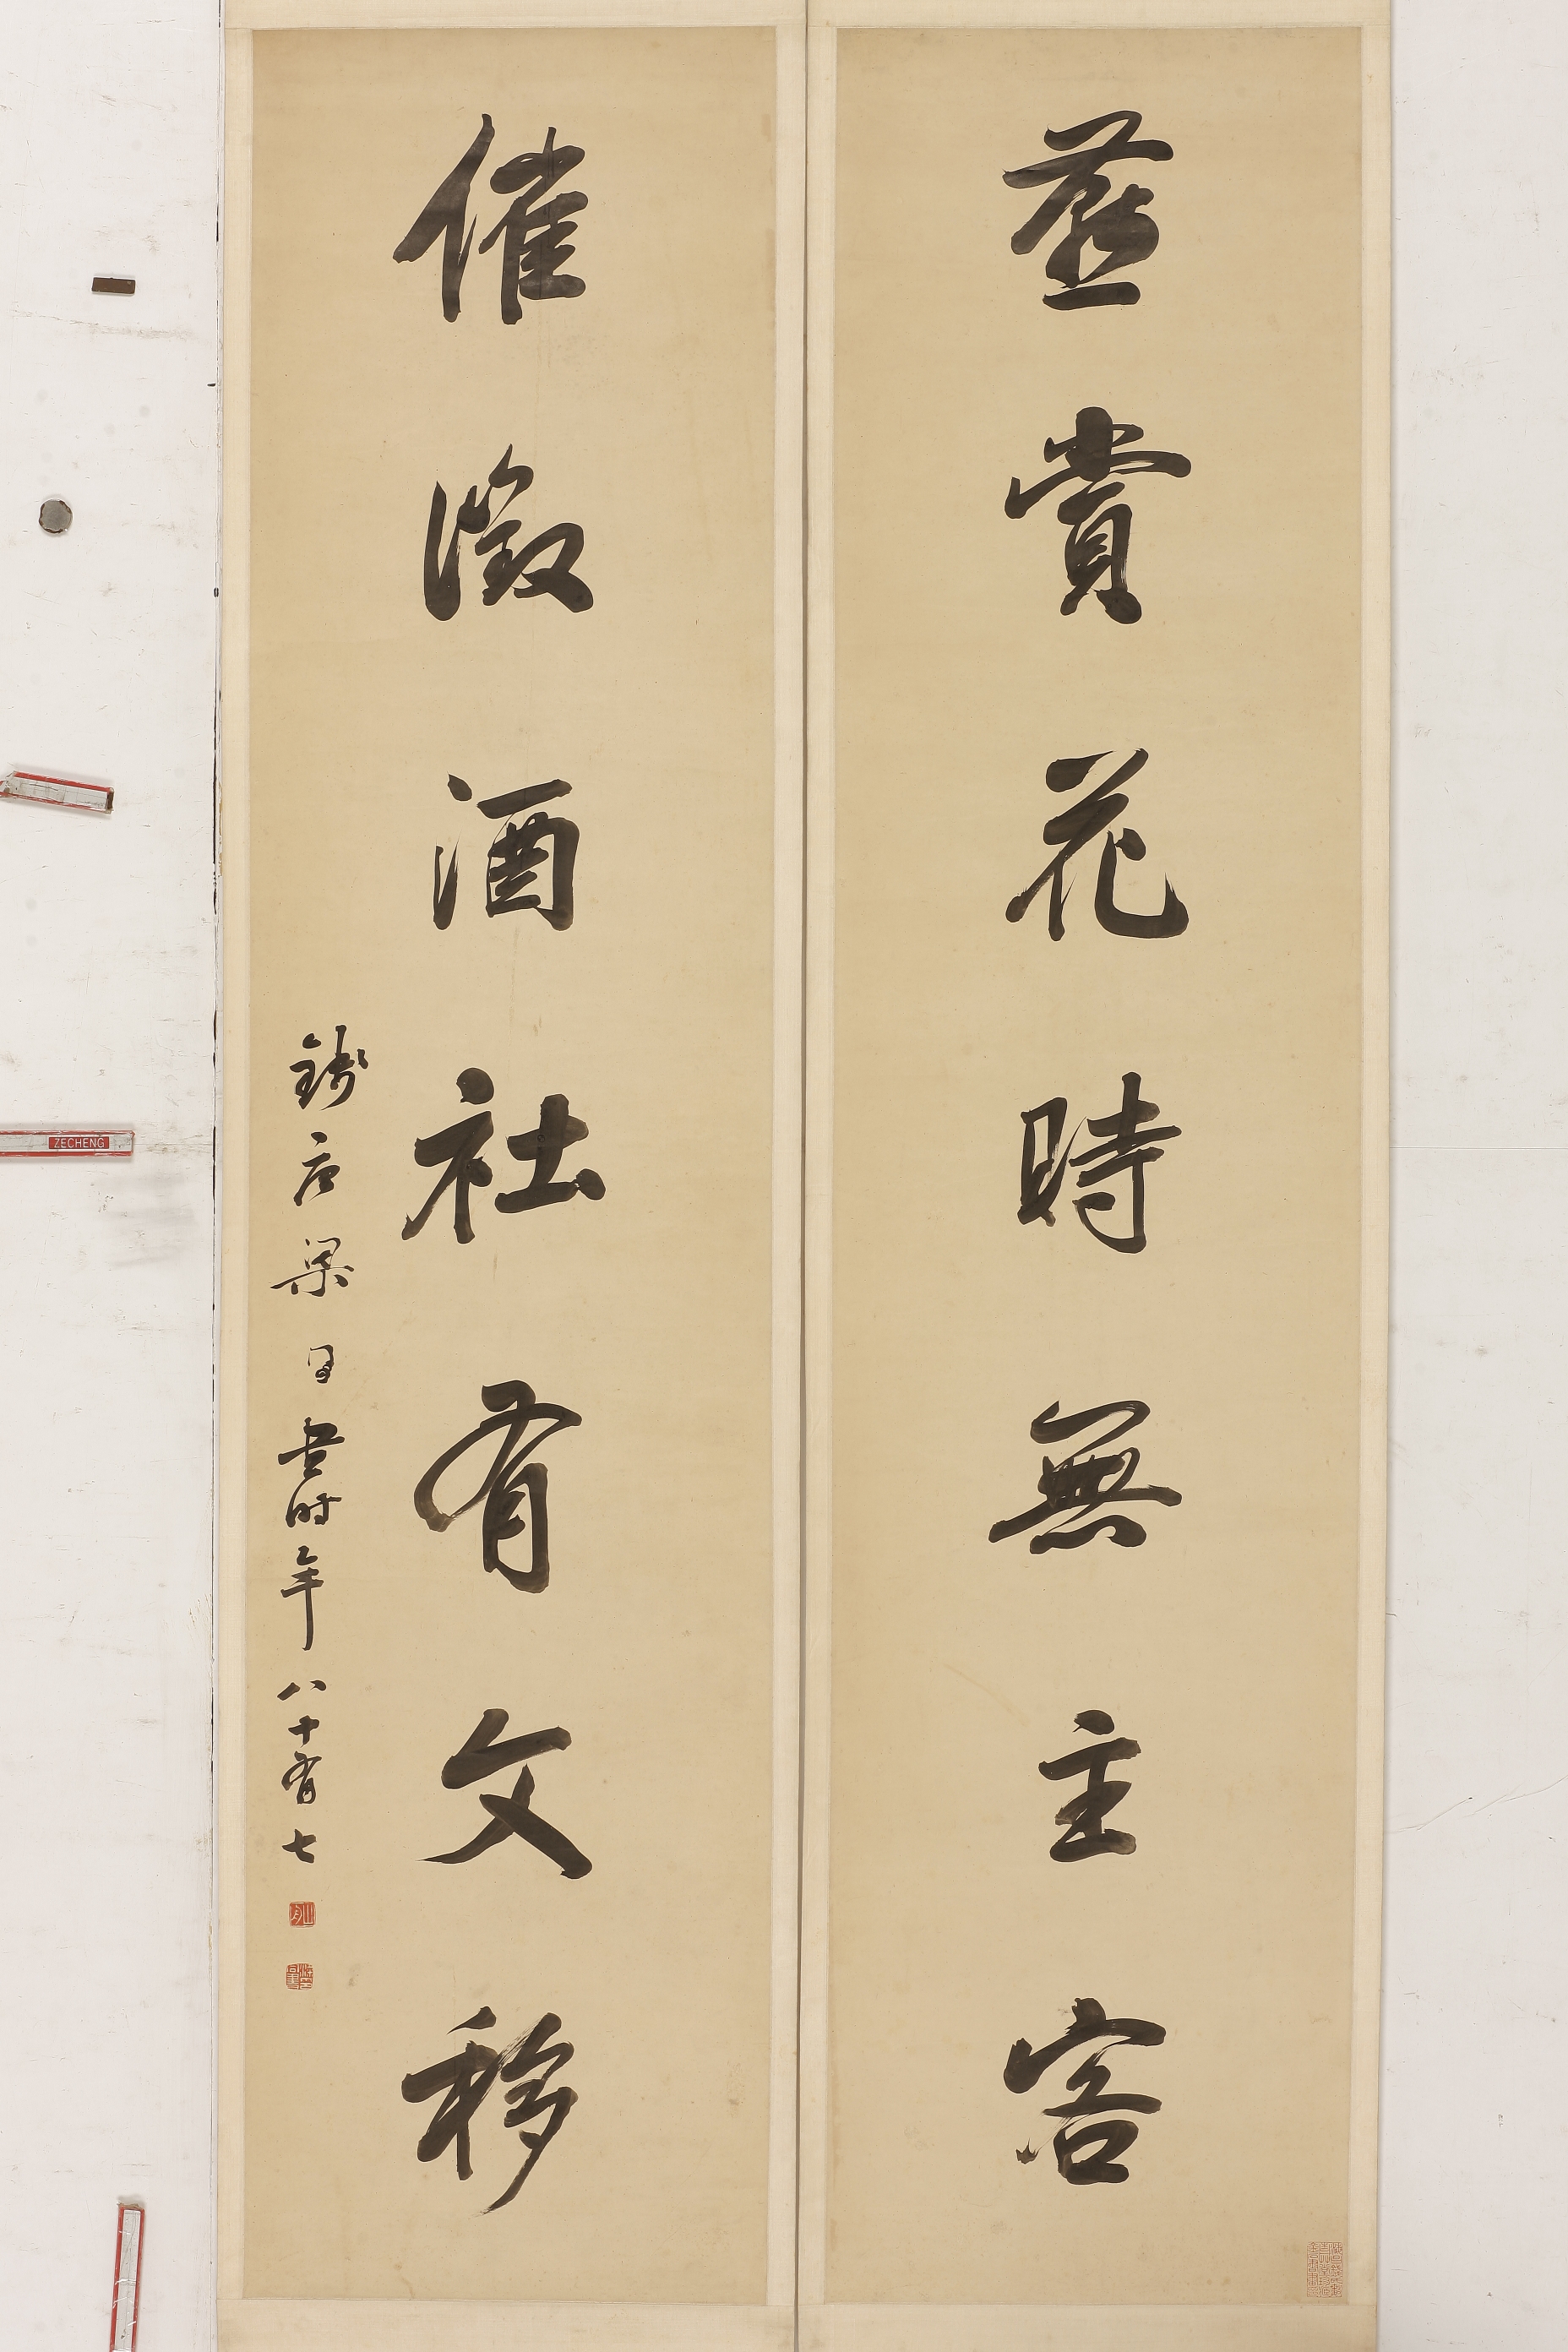 燕賞花時無主客
催徵酒社有文移
錢唐梁同書時年八十有七
山舟
ZECHENG